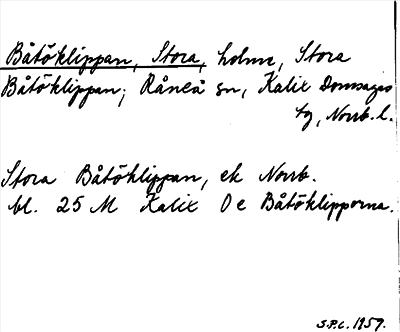 Båtöklippan, Stora, holme, Stora
Båtöklippan; Råneå sn, Kalix Domsagas
tg, Norrb. l.
Stora Båtöklippan, ek Norrb.
bl. 25 M Kalix Oe Båtöklipporna.
S.P.C. 1957.